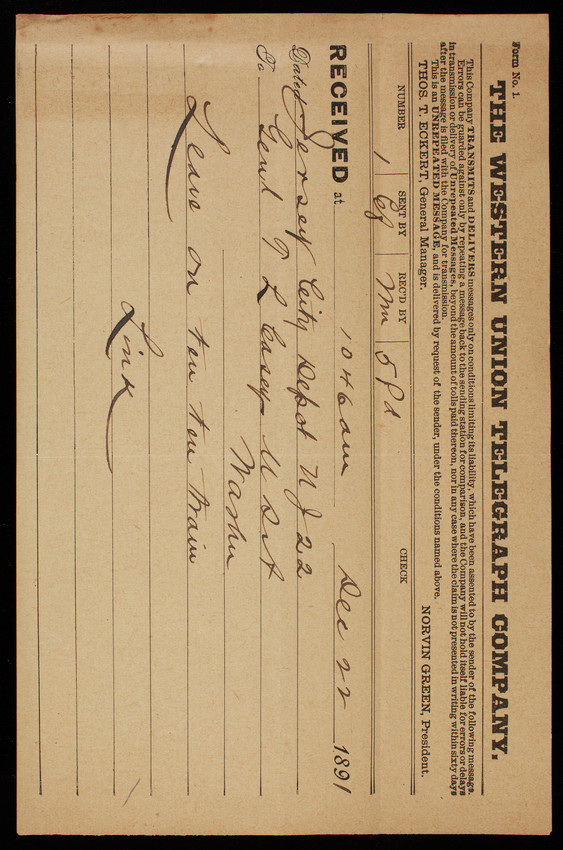 Form No. 1.
THE WESTERN UNION TELEGRAPH COMPANY.
This Company TRANSMITS and DELIVERS messages only on conditions limiting its liability, which have been assented to by the sender of the following message.
Errors can be guarded against only by repeating a message back to the sending station for comparison, and the Company will not hold itself liable for errors or delays
in transmission or delivery of Unrepeated Messages, beyond the amount of tolls paid thereon, nor in any case where the claim is not presented in writing within sixty days
after the message is filed with the Company for transmission.
This is an UNREPEATED MESSAGE, and is delivered by request of the sender, under the conditions named above.
THOS. T. ECKERT, General Manager. NORVIN GREEN, President.
NUMBER SENT BY REC'D BY CHECK
1 5 Pd
RECEIVED at 1046am Dec 22 1891
Dated Jersey City Depot N J 22
To Genl T L Casey U S A
Washn
Leave on ten ten train
Link